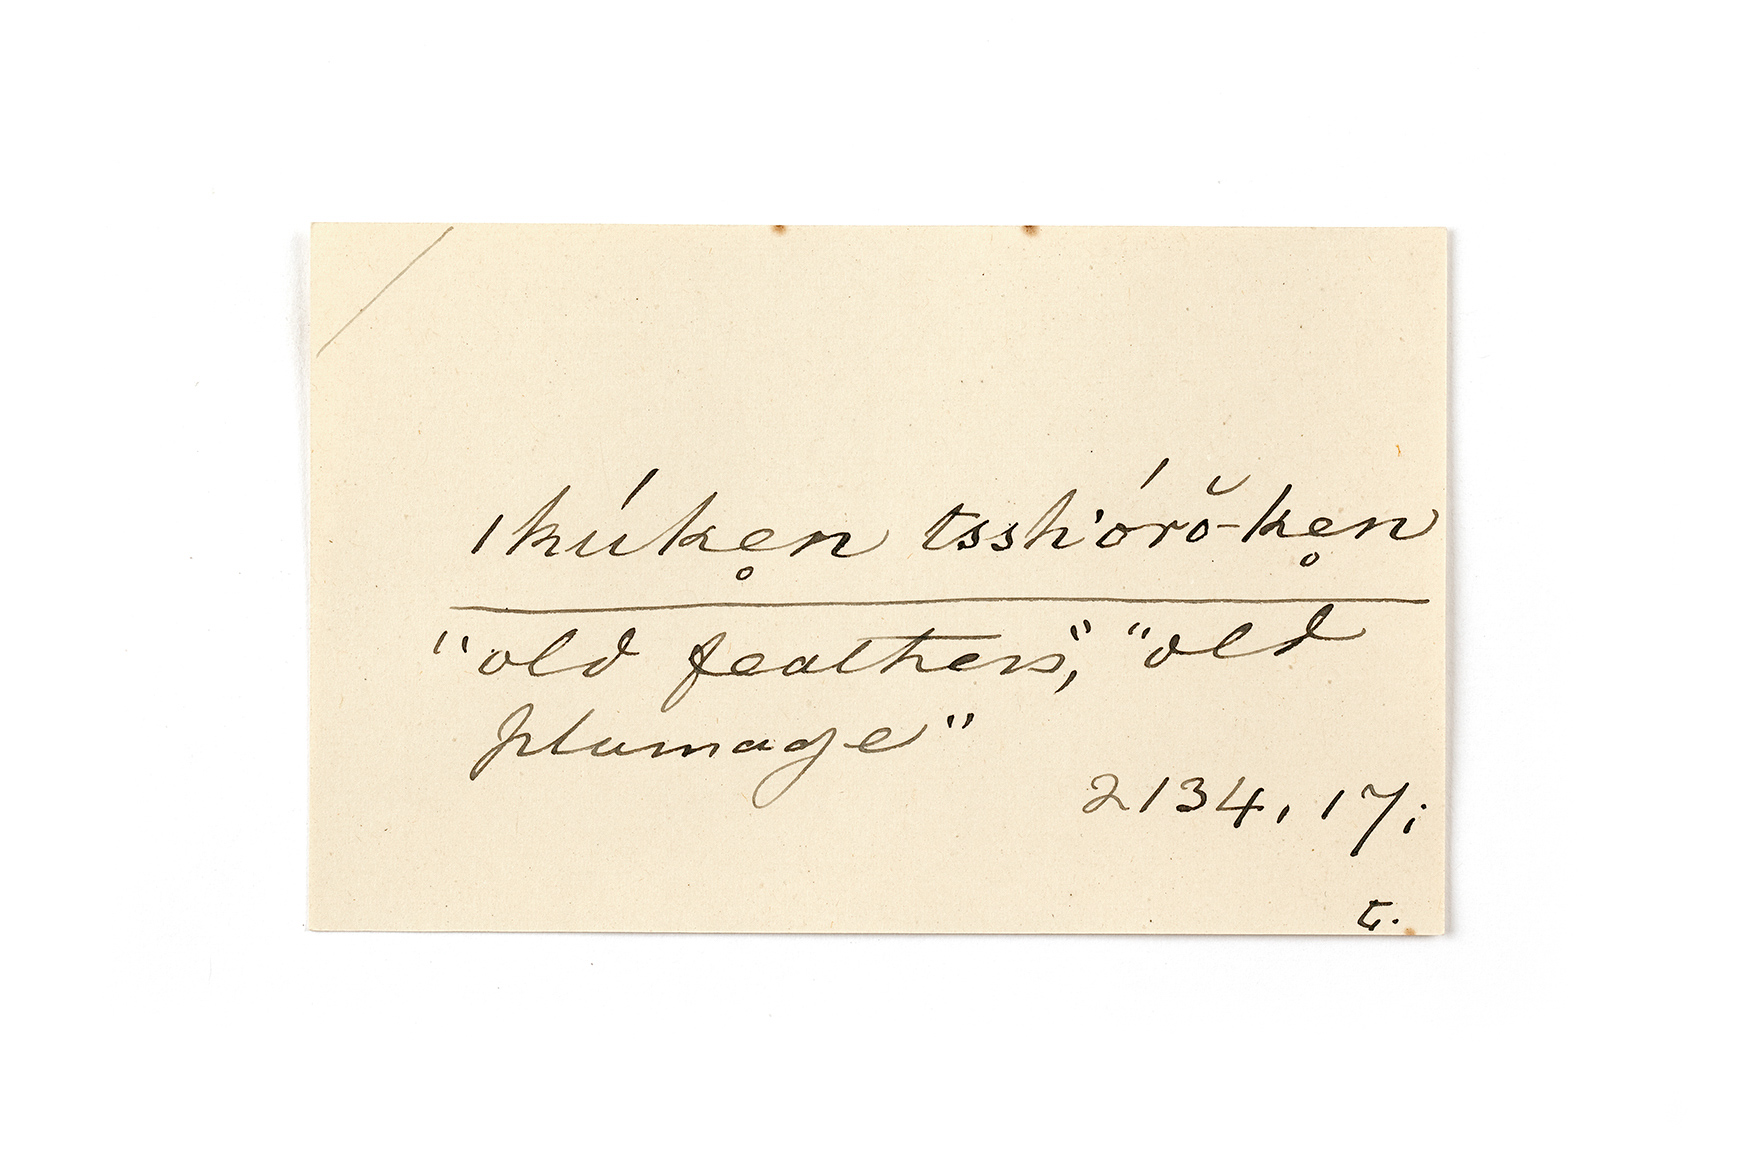 ıkúke̥n tssh'órŏ-ke̥n
"old feathers", "old
plumage"
2134, 17;
t.